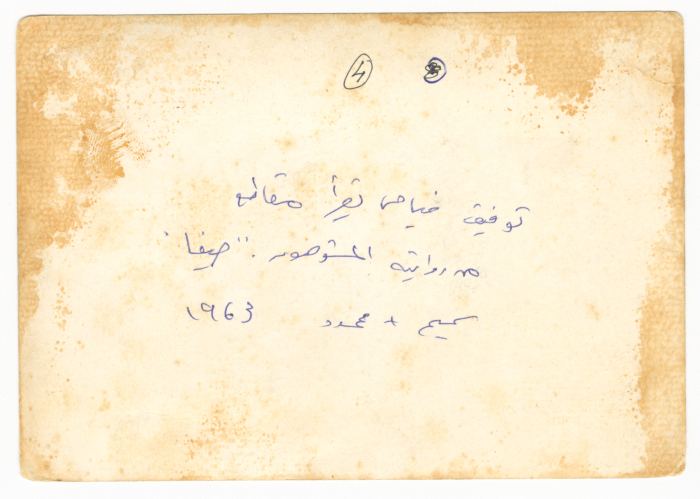 4
توفيق فياض يقرأ مقاطع
من روايته المشوهون. "حيفا"
سميح + محمود 1963